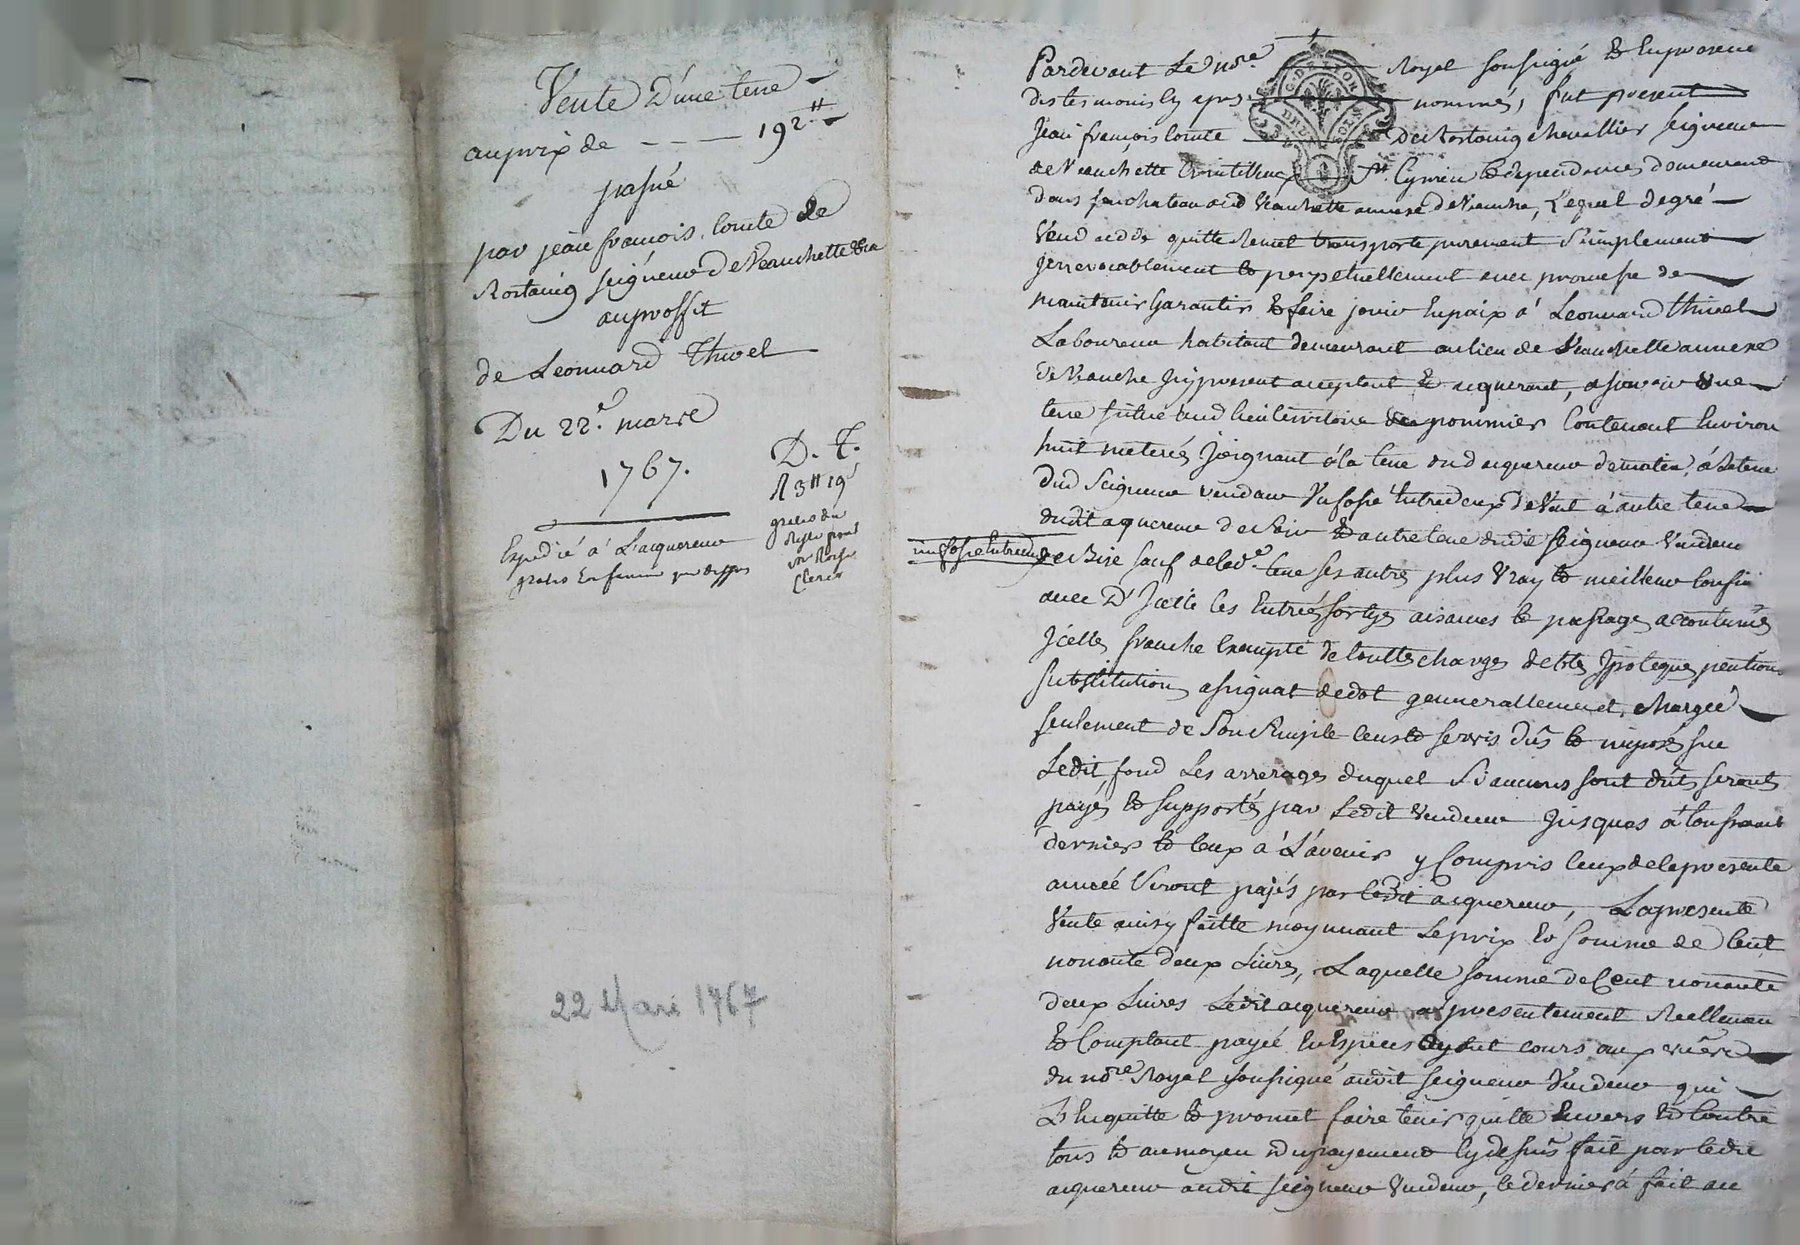 Vente D'une terre
au prix de - - - 192 ᵗᵗ
passé
par jean françois Comte de
Rostaing seigneur de Veauchette &ca
au proffit
de Leonnard Thivel
Du 22.e mars
1767.
D. T.
R 3ᵗᵗ 19ˢ
Expedié á L'acquereur
gratis en
22 Mars 1767
Pardevant Le nore Royal soussigné & En presence
des tesmoins cy apres nommés, fut present
Jean françois Comte De Rostaing chevallier seigneur
de Veauchette St Cyprien & dependances demeurant
dans son chateau dud Veauchette annexe de Veauche, Lequel de gré
Vend cedde quitte Remet transporte purement Simplement
Jrrevocablement & perpetuellement avec promesse de
maintenir Garantir & faire jouir En paix á Leonnard Thivel
Laboureur habitant demeurant au lieu de Veauchette annexe
de Veauche Jcy present acceptant & acquerant, a sçavoir une
terre situé aud lieu territoire de pommier Contenant Environ
huit meterés Joignant á la terre dud acquereur de matin, á la terre
dud Seigneur vendeur Un fossé Entre deux de Vent á autre terre
dudit acquereur de soir & autre terre dudit seigneur Vendeur
un fossé Entre deux de Bize sauf de lade terre ses autres plus Vray & meilleur Confin
avec D'Jcelle les Entrées sortyes aisances & passages accoutumés
Jcelle franche Exempte de touttes charges debtes Jpoteques pentions
substitutions assignat de dot generallement, chargée
seulement de Son Simple Cens & servis dûs & imposés sur
Ledit fond Les arrerages duquel Si aucuns sont dûs seront
payés & supportés par Ledit Vendeur Jusques á toussaint
derniers & Ceux á L'avenir y Compris Ceux de la presente
année Seront payés par Ledit acquereur, La presente
Vente ainsy faitte moyennant Le prix & Somme de Cent
nonante deux Livres, Laquelle somme de Cent nonante
deux Livres Ledit acquereur a presentement Reellement
& Comptant payée En Especes ayant cours aux
du nore Royal soussigné audit seigneur Vendeur qui
L'En quitte & promet faire tenir quitte Envers & Contre
tous & au moyen du payement Cy dessus fait par Ledit
acquereur audit seigneur Vendeur, Ce dernier á fait au